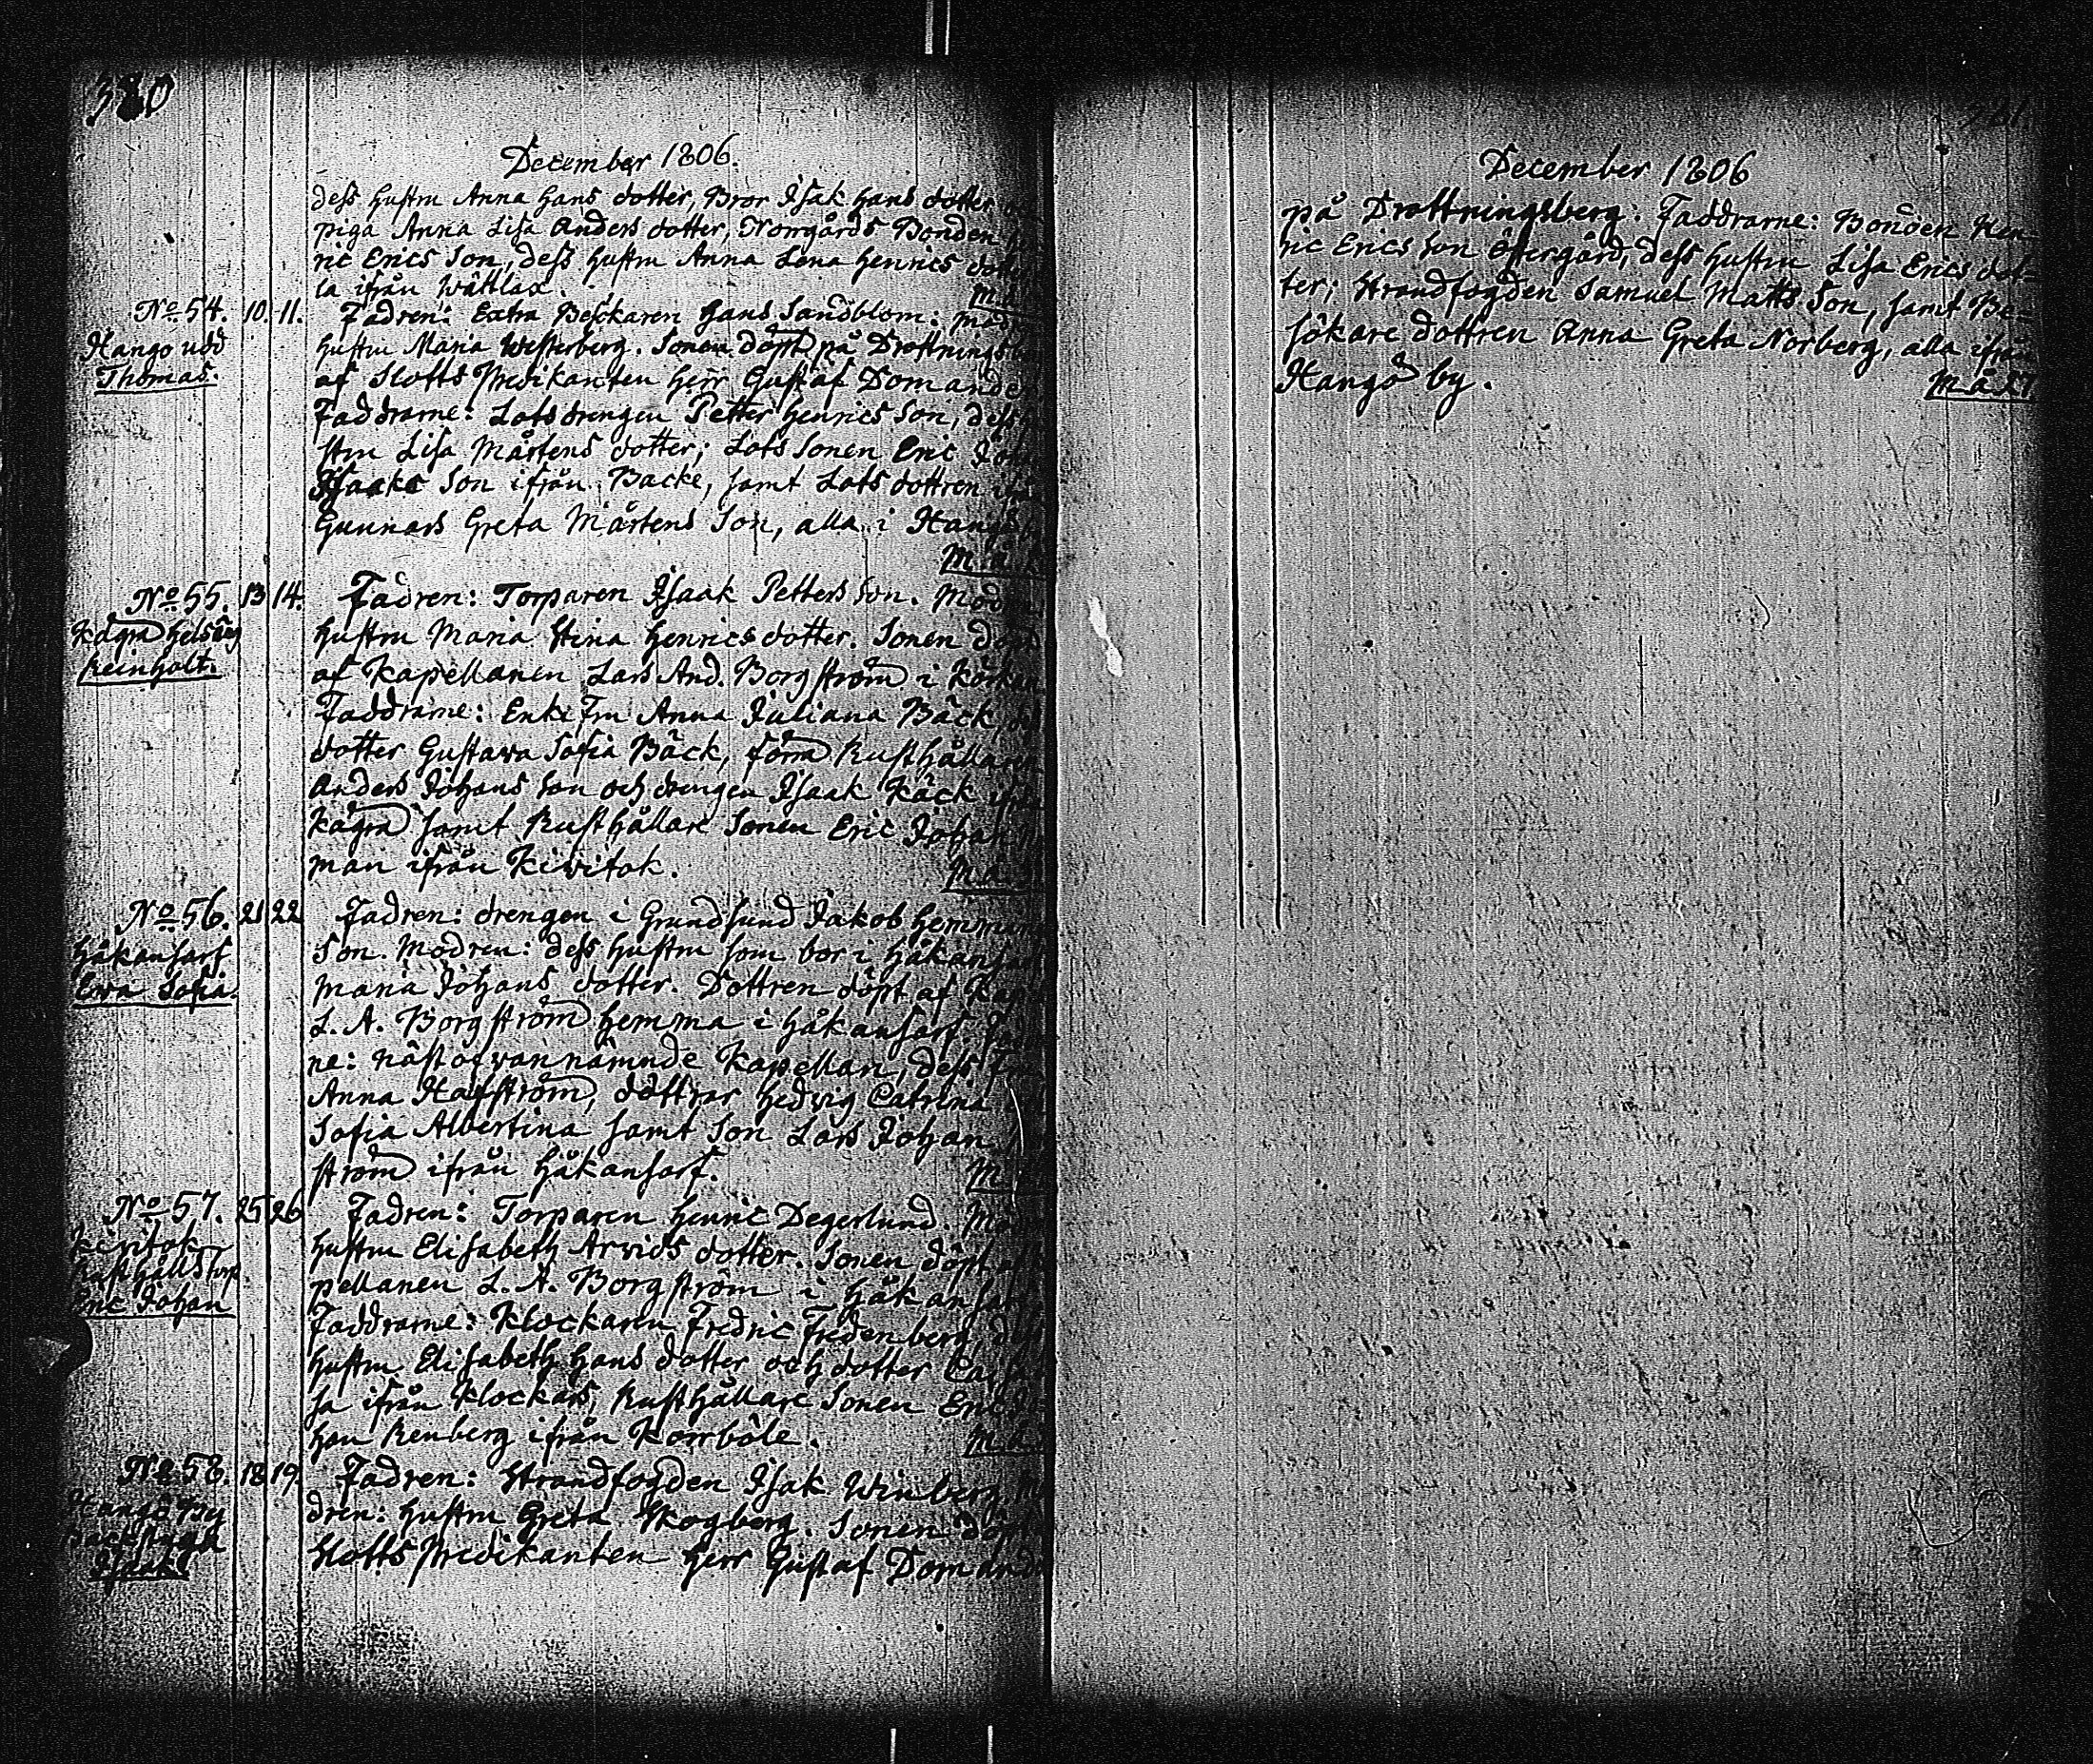 December 1806.
dess hustru Anna Hans dotter, Bror Isak Hans dotter
piga Anna Lisa Anders dotter, Norrgårds Bonden
ric Erics Son, dess hustru Anna Lena Henrics dotter
la ifrån Wättlax.
No 54. 10. 11. Fadren: Extra Besökaren Hans Sandblom: Modren
Hangö udd
Thomas.
hustru Maria Westerberg. Sonen döpt på Drottnings
af Slotts Predikanten Herr Gustaf Domander
Faddrarne: Lots drengen Petter Henrics Son, dess
stru Lisa Mårtens dotter; Lots Sonen Eric
Isaaks Son ifrån Backe, samt Lots dottren
Gunnars Greta Mårtens Son, alla i Hangö
No 55. 13 14. Fadren: Torparen Isaak Petters Son. Modren
Kågra Helsing
Reinholt.
hustru Maria Stina Henrics dotter. Sonen döpt
af Kapellanen Lars And. Borgström i Kårkan
Faddrarne: Enke Fru Anna Juliana Bäck,
dotter Gustava Sofia Bäck, förra Rusthållaren
Anders Johans Son och drengen Isaak Käck ifrån
Kågra samt Rusthållare Sonen Eric Johan
man ifrån Kivitok.
No 56. 21 22 Fadren: drengen i Grundsund Jakob Hemmings
Håkansarf
Ewa Sofia.
Son. Modren: dess hustru som bor i Håkansarf
Maria Johans dotter. Dottren döpt af Kap
L. A. Borgström hemma i Håkansarf.
ne: näst ofvannämnde Kapellan, dess Fru
Anna Hafström, döttrar Hedvig Catrina
Sofia Albertina samt Son Lars Johan
ström ifrån Håkansarf.
No 57. 25 26 Fadren: Torparen Henric Degerlund.
Kivitok
Rusthålls torp
Eric Johan
hustru Elisabeth Arvids dotter. Sonen döpt af
pellanen L. A. Borgström i Håkansarf
Faddrarne: Klockaren Fredric Fredenberg, dess
hustru Elisabeth Hans dotter och dotter Cajsa
sa ifrån Klockars, Rusthållare Sonen Eric
han Renberg ifrån Korrböle.
No 58. 18 19. Fadren: Strandfogden Isak Winberg
Hangö By
Backstuga
Isaak
dren: hustru Greta Skogberg. Sonen döpt
Slotts Predikanten Herr Gustaf Domander
December 1806
på Drottningsberg: Faddrarne: Bonden Hen-
ric Erics Son Östergård, dess hustru Lisa Erics dot-
ter; Strandfogden Samuel Matts Son, samt Be-
sökare dottren Anna Greta Norberg, alla ifrån
Hangö by.
M. å. 27